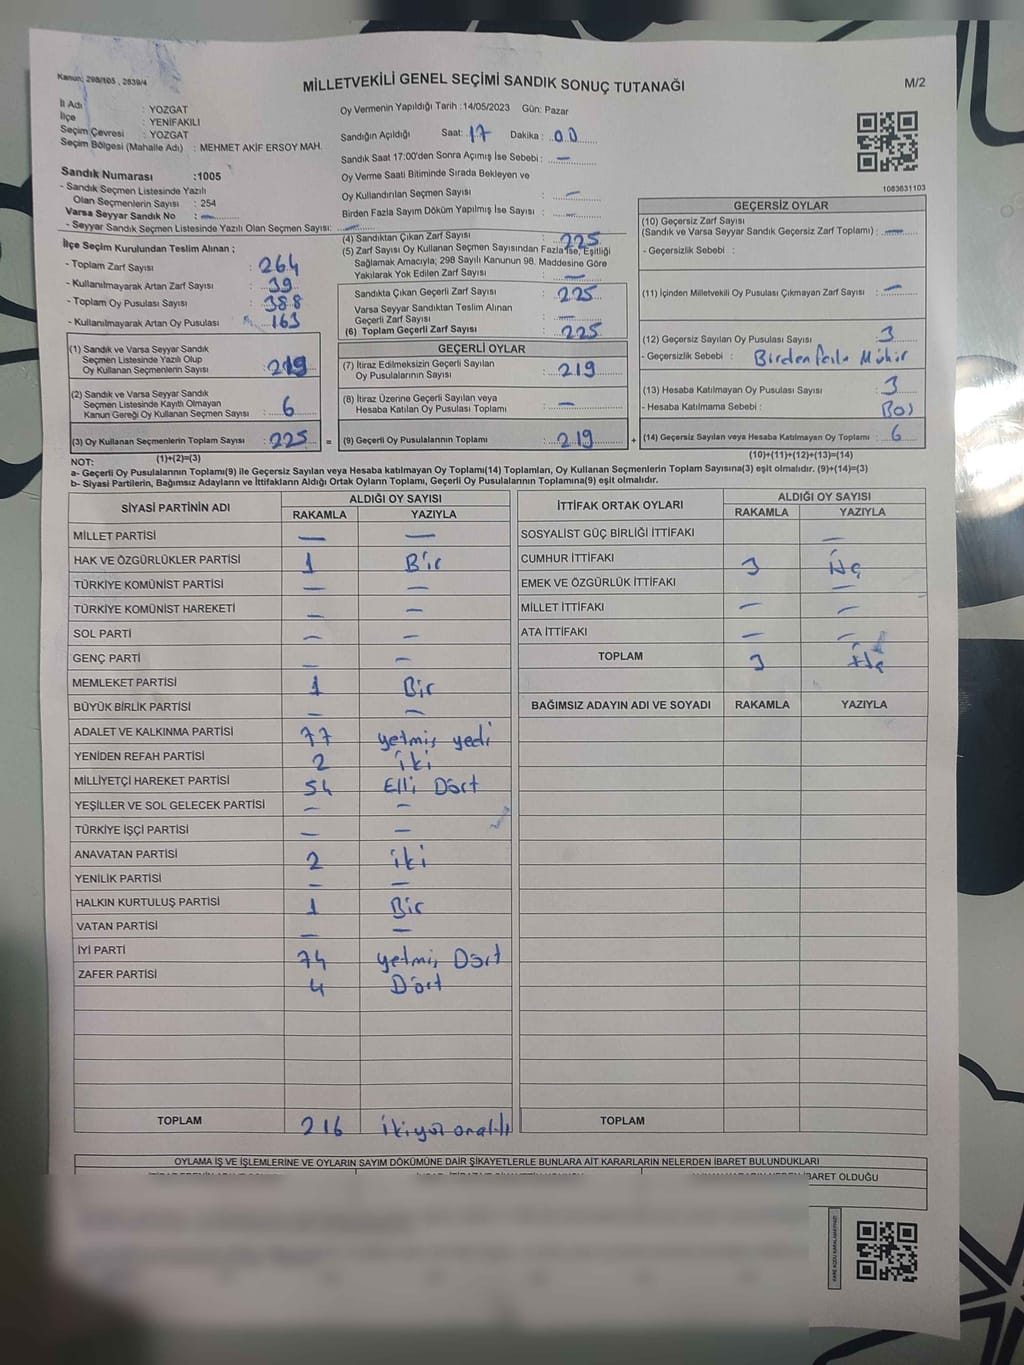 Kanun: 298/105 , 2839/4
MİLLETVEKİLİ GENEL SEÇİMİ SANDIK SONUÇ TUTANAĞI
M/2
İl Adı : YOZGAT
İlçe : YENİFAKILI
Seçim Çevresi : YOZGAT
Seçim Bölgesi (Mahalle Adı) : MEHMET AKİF ERSOY MAH.
Sandık Numarası :1005
- Sandık Seçmen Listesinde Yazılı
Olan Seçmenlerin Sayısı : 254
Varsa Seyyar Sandık No : —
- Seyyar Sandık Seçmen Listesinde Yazılı Olan Seçmen Sayısı: —
Oy Vermenin Yapıldığı Tarih :14/05/2023 Gün: Pazar
Sandığın Açıldığı Saat: 17 Dakika : 00
Sandık Saat 17:00'den Sonra Açımış İse Sebebi : —
Oy Verme Saati Bitiminde Sırada Bekleyen ve
Oy Kullandırılan Seçmen Sayısı : —
Birden Fazla Sayım Döküm Yapılmış İse Sayısı : —
1083631103
İlçe Seçim Kurulundan Teslim Alınan ;
- Toplam Zarf Sayısı : 264
- Kullanılmayarak Artan Zarf Sayısı : 39
- Toplam Oy Pusulası Sayısı : 388
- Kullanılmayarak Artan Oy Pusulası : 163
(1) Sandık ve Varsa Seyyar Sandık
Seçmen Listesinde Yazılı Olup
Oy Kullanan Seçmenlerin Sayısı : 219
(2) Sandık ve Varsa Seyyar Sandık
Seçmen Listesinde Kayıtlı Olmayan
Kanun Gereği Oy Kullanan Seçmen Sayısı : 6
(3) Oy Kullanan Seçmenlerin Toplam Sayısı : 225 =
(1)+(2)=(3)
(4) Sandıktan Çıkan Zarf Sayısı : 225
(5) Zarf Sayısı Oy Kullanan Seçmen Sayısından Fazla İse, Eşitliği
Sağlamak Amacıyla, 298 Sayılı Kanunun 98. Maddesine Göre
Yakılarak Yok Edilen Zarf Sayısı : —
Sandıkta Çıkan Geçerli Zarf Sayısı : 225
Varsa Seyyar Sandıktan Teslim Alınan
Geçerli Zarf Sayısı : —
(6) Toplam Geçerli Zarf Sayısı : 225
GEÇERLİ OYLAR
(7) İtiraz Edilmeksizin Geçerli Sayılan
Oy Pusulalarının Sayısı : 219
(8) İtiraz Üzerine Geçerli Sayılan veya
Hesaba Katılan Oy Pusulası Toplamı : —
(9) Geçerli Oy Pusulalarının Toplamı : 219 +
GEÇERSİZ OYLAR
(10) Geçersiz Zarf Sayısı
(Sandık ve Varsa Seyyar Sandık Geçersiz Zarf Toplamı) : —
- Geçersizlik Sebebi :
(11) İçinden Milletvekili Oy Pusulası Çıkmayan Zarf Sayısı : —
(12) Geçersiz Sayılan Oy Pusulası Sayısı : 3
- Geçersizlik Sebebi : Birden fazla Mühür
(13) Hesaba Katılmayan Oy Pusulası Sayısı : 3
- Hesaba Katılmama Sebebi : Boş
(14) Geçersiz Sayılan veya Hesaba Katılmayan Oy Toplamı : 6
(10)+(11)+(12)+(13)=(14)
NOT:
a- Geçerli Oy Pusulalarının Toplamı(9) ile Geçersiz Sayılan veya Hesaba katılmayan Oy Toplamı(14) Toplamları, Oy Kullanan Seçmenlerin Toplam Sayısına(3) eşit olmalıdır. (9)+(14)=(3)
b- Siyasi Partilerin, Bağımsız Adayların ve İttifakların Aldığı Ortak Oyların Toplamı, Geçerli Oy Pusulalarının Toplamına(9) eşit olmalıdır.
SİYASİ PARTİNİN ADI ALDIĞI OY SAYISI
RAKAMLA YAZIYLA
MİLLET PARTİSİ — —
HAK VE ÖZGÜRLÜKLER PARTİSİ 1 Bir
TÜRKİYE KOMÜNİST PARTİSİ — —
TÜRKİYE KOMÜNİST HAREKETİ — —
SOL PARTİ — —
GENÇ PARTİ — —
MEMLEKET PARTİSİ 1 Bir
BÜYÜK BİRLİK PARTİSİ — —
ADALET VE KALKINMA PARTİSİ 77 yetmiş yedi
YENİDEN REFAH PARTİSİ 2 iki
MİLLİYETÇİ HAREKET PARTİSİ 54 Elli Dört
YEŞİLLER VE SOL GELECEK PARTİSİ — —
TÜRKİYE İŞÇİ PARTİSİ — —
ANAVATAN PARTİSİ 2 iki
YENİLİK PARTİSİ — —
HALKIN KURTULUŞ PARTİSİ 1 Bir
VATAN PARTİSİ — —
İYİ PARTİ 74 yetmiş Dört
ZAFER PARTİSİ 4 Dört
TOPLAM 216 ikiyüz onaltı
İTTİFAK ORTAK OYLARI ALDIĞI OY SAYISI
RAKAMLA YAZIYLA
SOSYALİST GÜÇ BİRLİĞİ İTTİFAKI —
CUMHUR İTTİFAKI 3 üç
EMEK VE ÖZGÜRLÜK İTTİFAKI —
MİLLET İTTİFAKI — —
ATA İTTİFAKI — —
TOPLAM 3 üç
BAĞIMSIZ ADAYIN ADI VE SOYADI RAKAMLA YAZIYLA
TOPLAM
OYLAMA İŞ VE İŞLEMLERİNE VE OYLARIN SAYIM DÖKÜMÜNE DAİR ŞİKAYETLERLE BUNLARA AİT KARARLARIN NELERDEN İBARET BULUNDUKLARI
İBARET OLDUĞU
KARE KODU KARALAMAYINIZ!